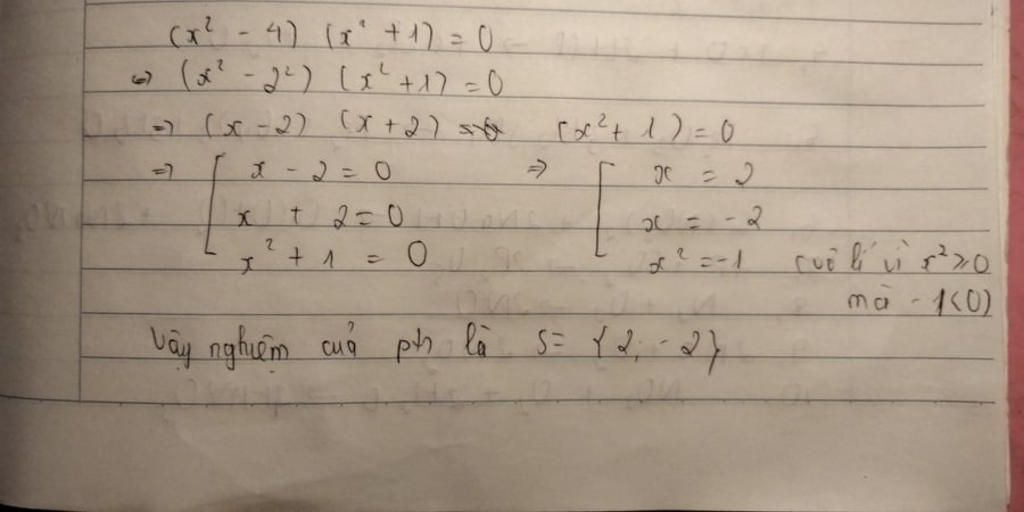 (x² - 4) (x² + 1) = 0
⇔ (x² - 2²) (x² + 1) = 0
⇒ (x - 2) (x + 2) (x² + 1) = 0
⇒ [ x - 2 = 0 ⇒ [ x = 2
x + 2 = 0 x = -2
x² + 1 = 0 x² = -1 (vô lí vì x² ≥ 0
mà -1<0)
Vậy nghiệm của pt là S = {2; -2}